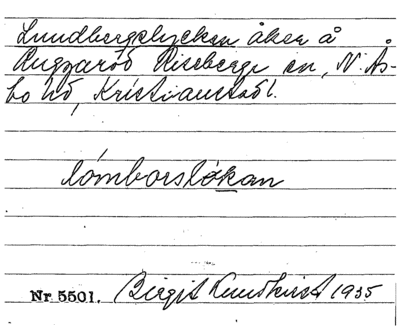 Lundbergslyckan åker å
Ruggaröd Riseberga sn, N. Ås-
bo hd, Kristianstad l.
lómborslókan
Nr 5501. Birgit Kundkvist 1935